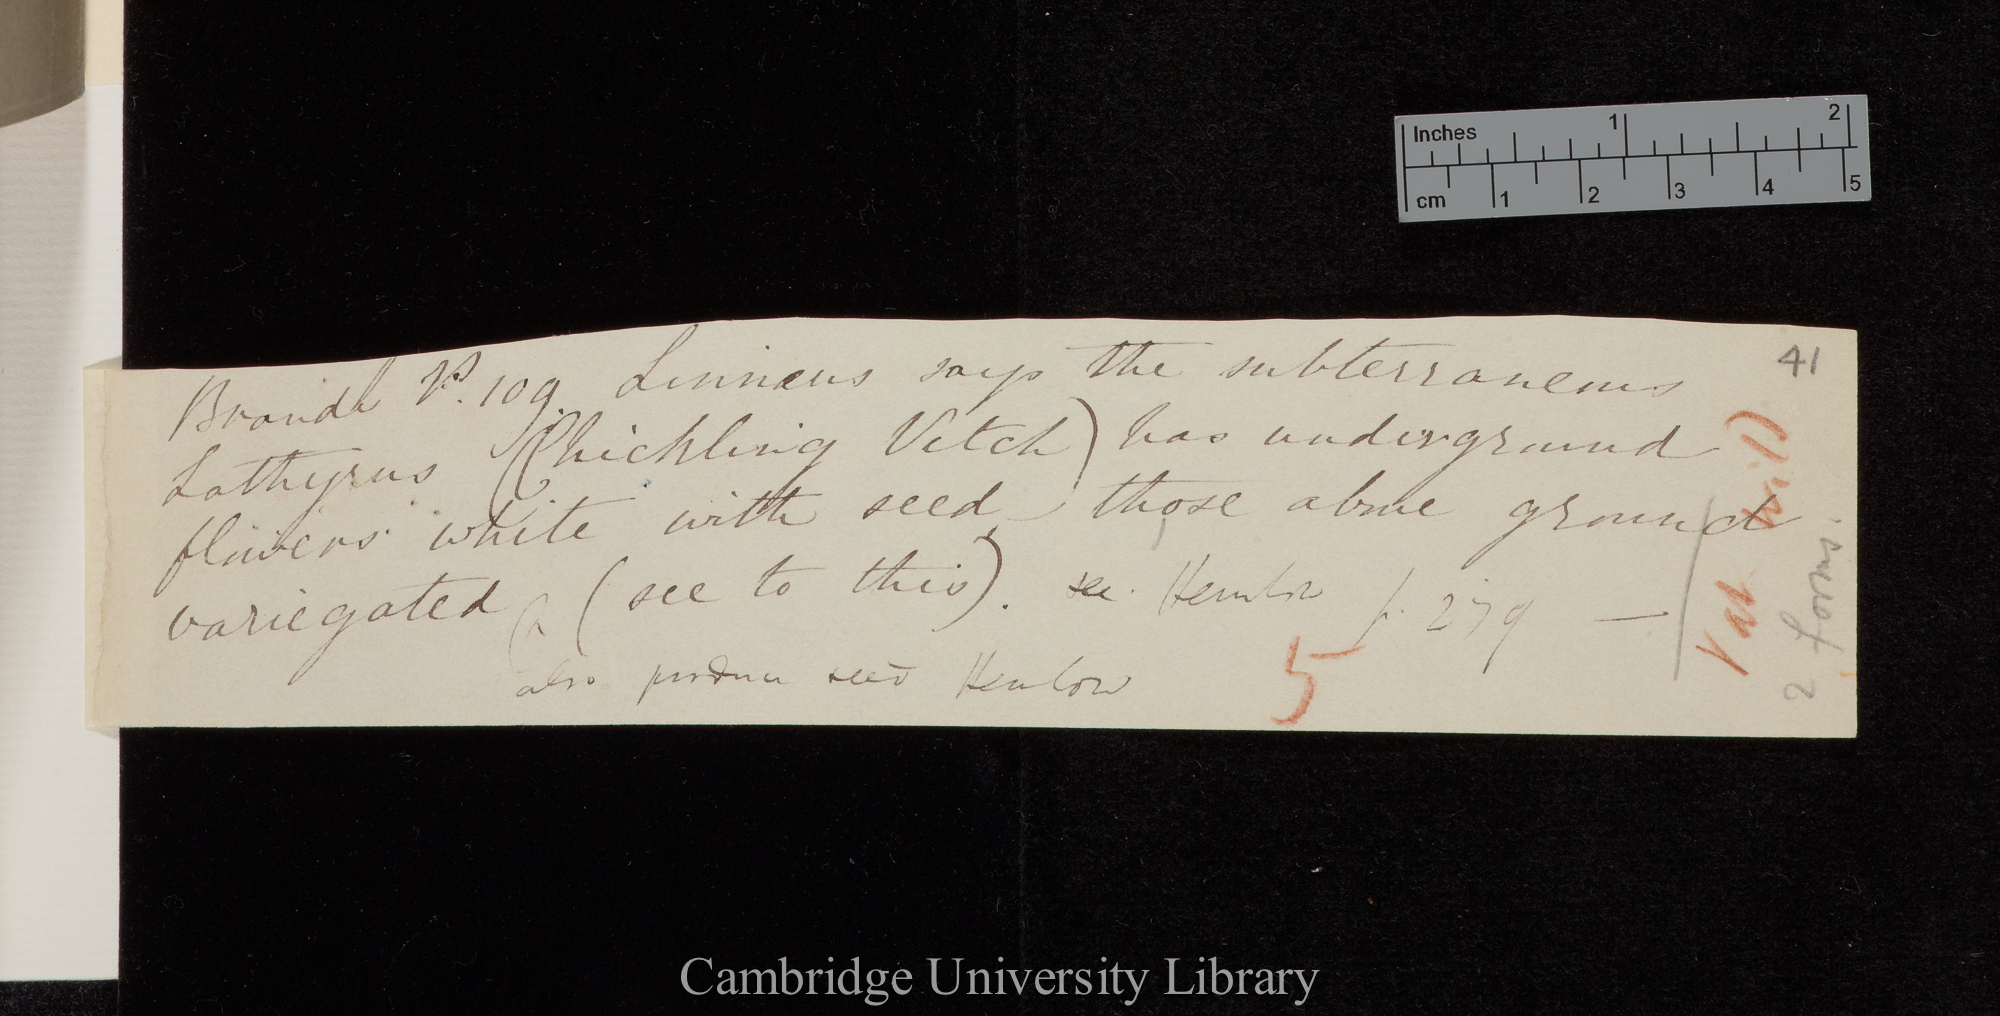 41
Brande P. 109. Linnæus says the subterraneous
Lathyrus (Chickling Vetch) has underground
flowers white with seed, those above ground
variegated (see to this). see Henslow p. 279 —
also produce seed Henslow
5
Var wild
2 forms.
Inches 1 2
cm 1 2 3 4 5
Cambridge University Library